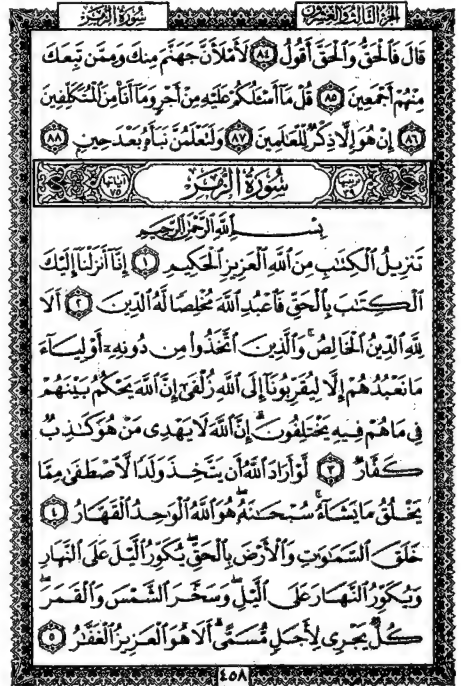 سُورَةُ الزُّمَرِ
الجُزْءُ الثَّالِثُ وَالعِشْرُونَ
قَالَ فَٱلْحَقُّ وَٱلْحَقَّ أَقُولُ ٨٤ لَأَمْلَأَنَّ جَهَنَّمَ مِنكَ وَمِمَّن تَبِعَكَ
مِنْهُمْ أَجْمَعِينَ ٨٥ قُلْ مَآ أَسْـَٔلُكُمْ عَلَيْهِ مِنْ أَجْرٍ وَمَآ أَنَا۠ مِنَ ٱلْمُتَكَلِّفِينَ
٨٦ إِنْ هُوَ إِلَّا ذِكْرٌ لِّلْعَـٰلَمِينَ ٨٧ وَلَتَعْلَمُنَّ نَبَأَهُۥ بَعْدَ حِينٍۭ ٨٨
ترتيبها ٣٩ سُورَةُ الزُّمَرِ آياتها ٧٥
بِسْمِ ٱللَّهِ ٱلرَّحْمَـٰنِ ٱلرَّحِيمِ
تَنزِيلُ ٱلْكِتَـٰبِ مِنَ ٱللَّهِ ٱلْعَزِيزِ ٱلْحَكِيمِ ١ إِنَّآ أَنزَلْنَآ إِلَيْكَ
ٱلْكِتَـٰبَ بِٱلْحَقِّ فَٱعْبُدِ ٱللَّهَ مُخْلِصًا لَّهُ ٱلدِّينَ ٢ أَلَا
لِلَّهِ ٱلدِّينُ ٱلْخَالِصُ ۚ وَٱلَّذِينَ ٱتَّخَذُوا۟ مِن دُونِهِۦٓ أَوْلِيَآءَ
مَا نَعْبُدُهُمْ إِلَّا لِيُقَرِّبُونَآ إِلَى ٱللَّهِ زُلْفَىٰٓ إِنَّ ٱللَّهَ يَحْكُمُ بَيْنَهُمْ
فِى مَا هُمْ فِيهِ يَخْتَلِفُونَ ۗ إِنَّ ٱللَّهَ لَا يَهْدِى مَنْ هُوَ كَـٰذِبٌ
كَفَّارٌ ٣ لَّوْ أَرَادَ ٱللَّهُ أَن يَتَّخِذَ وَلَدًا لَّٱصْطَفَىٰ مِمَّا
يَخْلُقُ مَا يَشَآءُ ۚ سُبْحَـٰنَهُۥ ۖ هُوَ ٱللَّهُ ٱلْوَٰحِدُ ٱلْقَهَّارُ ٤
خَلَقَ ٱلسَّمَـٰوَٰتِ وَٱلْأَرْضَ بِٱلْحَقِّ ۖ يُكَوِّرُ ٱلَّيْلَ عَلَى ٱلنَّهَارِ
وَيُكَوِّرُ ٱلنَّهَارَ عَلَى ٱلَّيْلِ ۖ وَسَخَّرَ ٱلشَّمْسَ وَٱلْقَمَرَ ۖ
كُلٌّ يَجْرِى لِأَجَلٍ مُّسَمًّى ۗ أَلَا هُوَ ٱلْعَزِيزُ ٱلْغَفَّـٰرُ ٥
٤٥٨